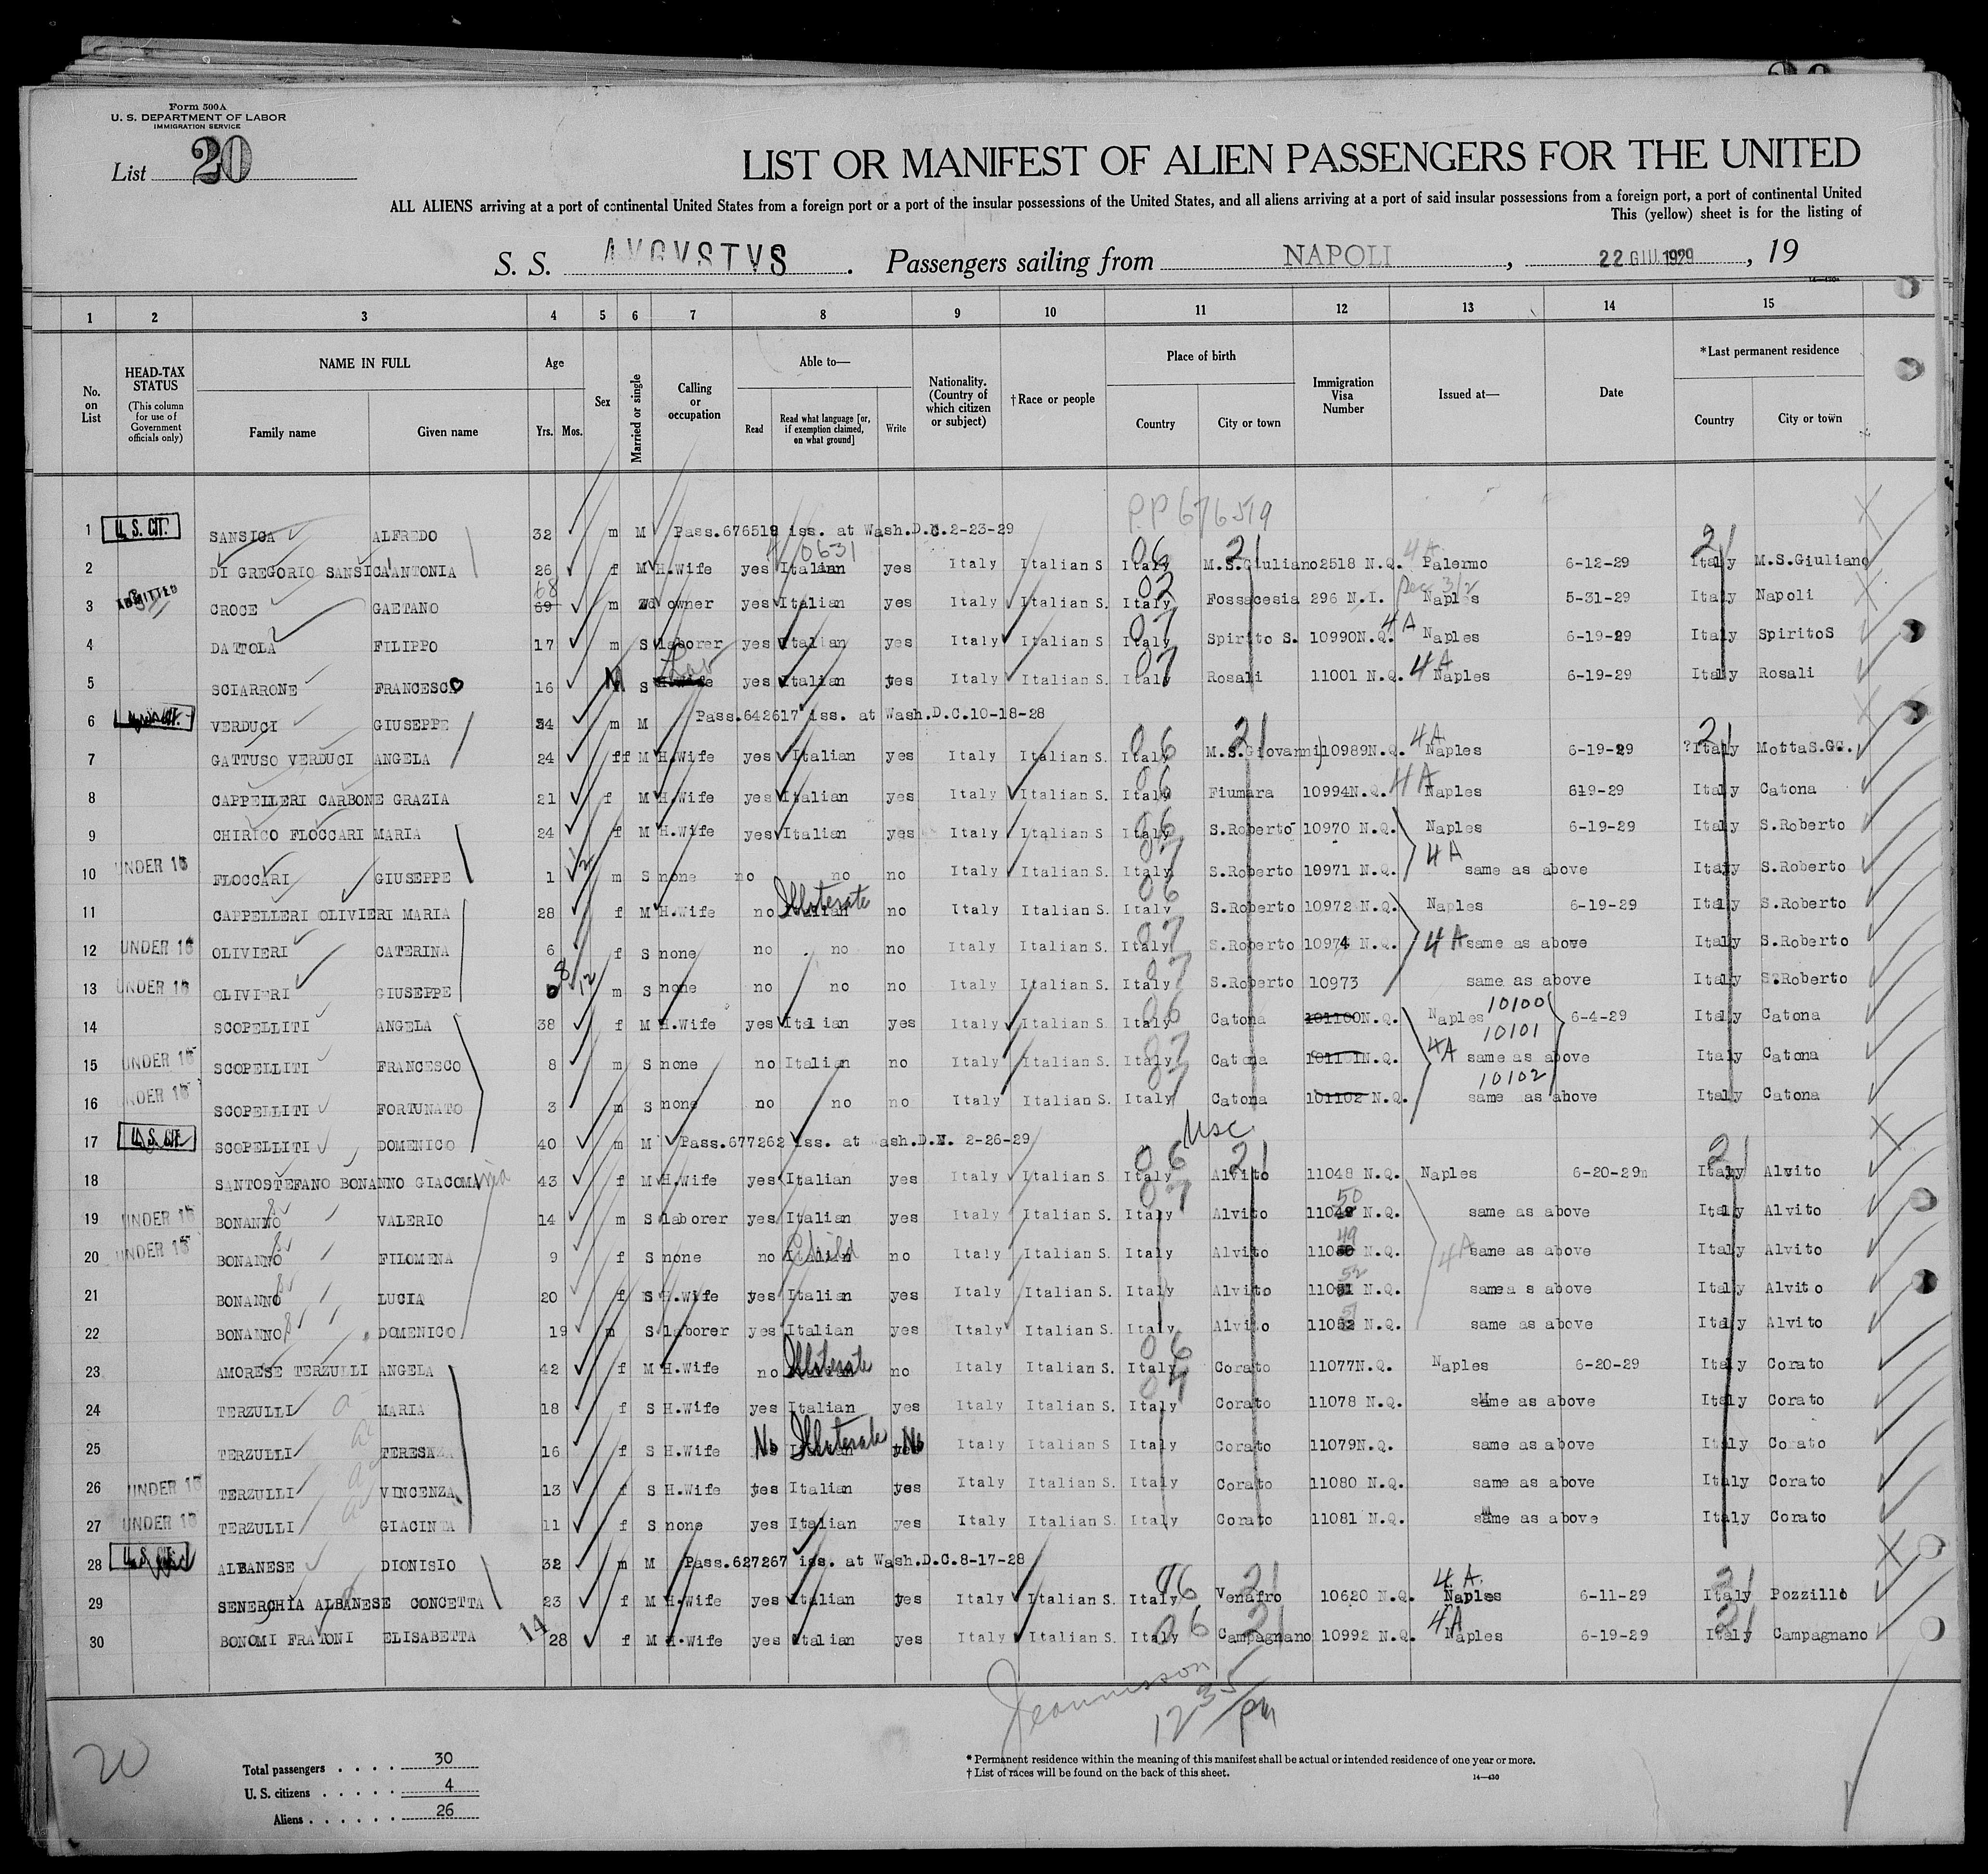 Form 500A
U. S. DEPARTMENT OF LABOR
IMMIGRATION SERVICE
List 20
LIST OR MANIFEST OF ALIEN PASSENGERS FOR THE UNITED
ALL ALIENS arriving at a port of continental United States from a foreign port or a port of the insular possessions of the United States, and all aliens arriving at a port of said insular possessions from a foreign port, a port of continental United
This (yellow) sheet is for the listing of
S. S. AVGVSTVS. Passengers sailing from NAPOLI, 22 GIU. 1929, 19
14—430
1 2 3 4 5 6 7 8 9 10 11 12 13 14 15
No. on List
HEAD-TAX STATUS (This column for use of Government officials only)
NAME IN FULL
Family name Given name
Age
Yrs. Mos.
Sex
Married or single
Calling or occupation
Able to—
Read Read what language [or, if exemption claimed, on what ground] Write
Nationality. (Country of which citizen or subject)
†Race or people
Place of birth
Country City or town
Immigration Visa Number
Issued at—
Date
*Last permanent residence
Country City or town
PP 676519
1 U. S. CIT. SANSICA ALFREDO 32 m M Pass.676519 iss. at Wash.D.C.2-23-29
0631 4A
2 DI GREGORIO SANSICA ANTONIA 26 f M H.Wife yes Italian yes Italy Italian S Italy 06 M.S.Giuliano 21 2518 N.Q. Palermo 6-12-29 Italy 21 M.S.Giuliano
3 ADMITTED CROCE GAETANO 69 68 m Wd owner yes Italian yes Italy Italian S. Italy 02 Fossacesia 296 N.I. Naples 5-31-29 Italy Napoli
4 DATTOLA FILIPPO 17 m S laborer yes Italian yes Italy Italian S. Italy 07 Spirito S. 10990N.Q. 4A Naples 6-19-29 Italy SpiritoS
5 SCIARRONE FRANCESCO 16 M S H.Wife Lab yes Italian yes Italy Italian S. Italy 07 Rosali 11001 N.Q. 4A Naples 6-19-29 Italy Rosali
6 VERDUCI GIUSEPPE 34 m M Pass.642617 iss. at Wash.D.C.10-18-28
7 GATTUSO VERDUCI ANGELA 24 ff M H.Wife yes Italian yes Italy Italian S. Italy 06 M.S.Giovanni 21 10989N.Q. 4A Naples 6-19-29 ?Italy 21 MottaS.GG.
8 CAPPELLERI CARBONE GRAZIA 21 f M H.Wife yes Italian yes Italy Italian S. Italy 06 Fiumara 10994N.Q. 4A Naples 619-29 Italy Catona
9 CHIRICO FLOCCARI MARIA 24 f M H.Wife yes Italian yes Italy Italian S Italy 06 S.Roberto 10970 N.Q. Naples 6-19-29 Italy S.Roberto
10 UNDER 16 FLOCCARI GIUSEPPE 1 m S none no no no Italy Italian S. Italy 07 S.Roberto 10971 N.Q. 4A same as above Italy S.Roberto
11 CAPPELLERI OLIVIERI MARIA 28 f M H.Wife no Italian Illiterate no Italy Italian S. Italy 06 S.Roberto 10972 N.Q. Naples 6-19-29 Italy S.Roberto
12 UNDER 16 OLIVIERI CATERINA 6 f S none no no no Italy Italian S. Italy 07 S.Roberto 10974 N.Q. 4A same as above Italy S.Roberto
13 UNDER 16 OLIVIERI GIUSEPPE 8/12 m S none no no no Italy Italian S. Italy 07 S.Roberto 10973 same as above Italy S.Roberto
14 SCOPELLITI ANGELA 38 f M H.Wife yes Italian yes Italy Italian S. Italy 06 Catona 101100N.Q. Naples 10100 6-4-29 Italy Catona
15 UNDER 16 SCOPELLITI FRANCESCO 8 m S none no Italian no Italy Italian S. Italy 07 Catona 101101N.Q. 10101 4A same as above Italy Catona
16 UNDER 16 SCOPELLITI FORTUNATO 3 m S none no no no Italy Italian S. Italy 07 Catona 101102 N.Q. 10102 same as above Italy Catona
17 U. S. CIT. SCOPELLITI DOMENICO 40 m M Pass.677262 iss. at Wash.D.C. 2-26-29 Usc
18 SANTOSTEFANO BONANNO GIACOMA 43 f M H.Wife yes Italian yes Italy Italian S. Italy 06 Alvito 21 11048 N.Q. Naples 6-20-29 Italy 21 Alvito
19 UNDER 16 BONANNO VALERIO 14 m S laborer yes Italian yes Italy Italian S. Italy 07 Alvito 11049 N.Q. 50 same as above Italy Alvito
20 UNDER 16 BONANNO FILOMENA 9 f S none no Italian Child no Italy Italian S. Italy Alvito 11050 N.Q. 49 4A same as above Italy Alvito
21 BONANNO LUCIA 20 f S H.Wife yes Italian yes Italy Italian S. Italy Alvito 11051 N.Q. 52 samea s above Italy Alvito
22 BONANNO DOMENICO 19 m S laborer yes Italian yes Italy Italian S. Italy Alvito 11052 N.Q. 51 same as above Italy Alvito
23 AMORESE TERZULLI ANGELA 42 f M H.Wife no Illiterate no Italy Italian S. Italy 06 Corato 11077N.Q. Naples 6-20-29 Italy Corato
24 TERZULLI MARIA 18 f S H.Wife yes Italian yes Italy Italian S. Italy 07 Corato 11078 N.Q. same as above Italy Corato
25 TERZULLI TERESA 16 f S H.Wife No Illiterate No Italy Italian S Italy Corato 11079N.Q. same as above Italy Corato
26 UNDER 16 TERZULLI VINCENZA 13 f S H.Wife yes Italian yes Italy Italian S. Italy Corato 11080 N.Q. same as above Italy Corato
27 UNDER 16 TERZULLI GIACINTA 11 f S none yes Italian yes Italy Italian S. Italy Corato 11081 N.Q. same as above Italy Corato
28 U. S. CIT. ALBANESE DIONISIO 32 m M Pass.627267 iss. at Wash.D.C.8-17-28
29 SENERCHIA ALBANESE CONCETTA 23 f M H.Wife yes Italian yes Italy Italian S. Italy 06 Venafro 21 10620 N.Q. 4A. Naples 6-11-29 Italy 21 Pozzillo
30 BONOMI FRATONI ELISABETTA 14 28 f M H.Wife yes Italian yes Italy Italian S. Italy 06 Campagnano 21 10992 N.Q. 4A Naples 6-19-29 Italy 21 Campagnano
12 35 pm
20
Total passengers . . . . 30
U. S. citizens . . . . . 4
Aliens . . . . . . 26
* Permanent residence within the meaning of this manifest shall be actual or intended residence of one year or more.
† List of races will be found on the back of this sheet.
14—430